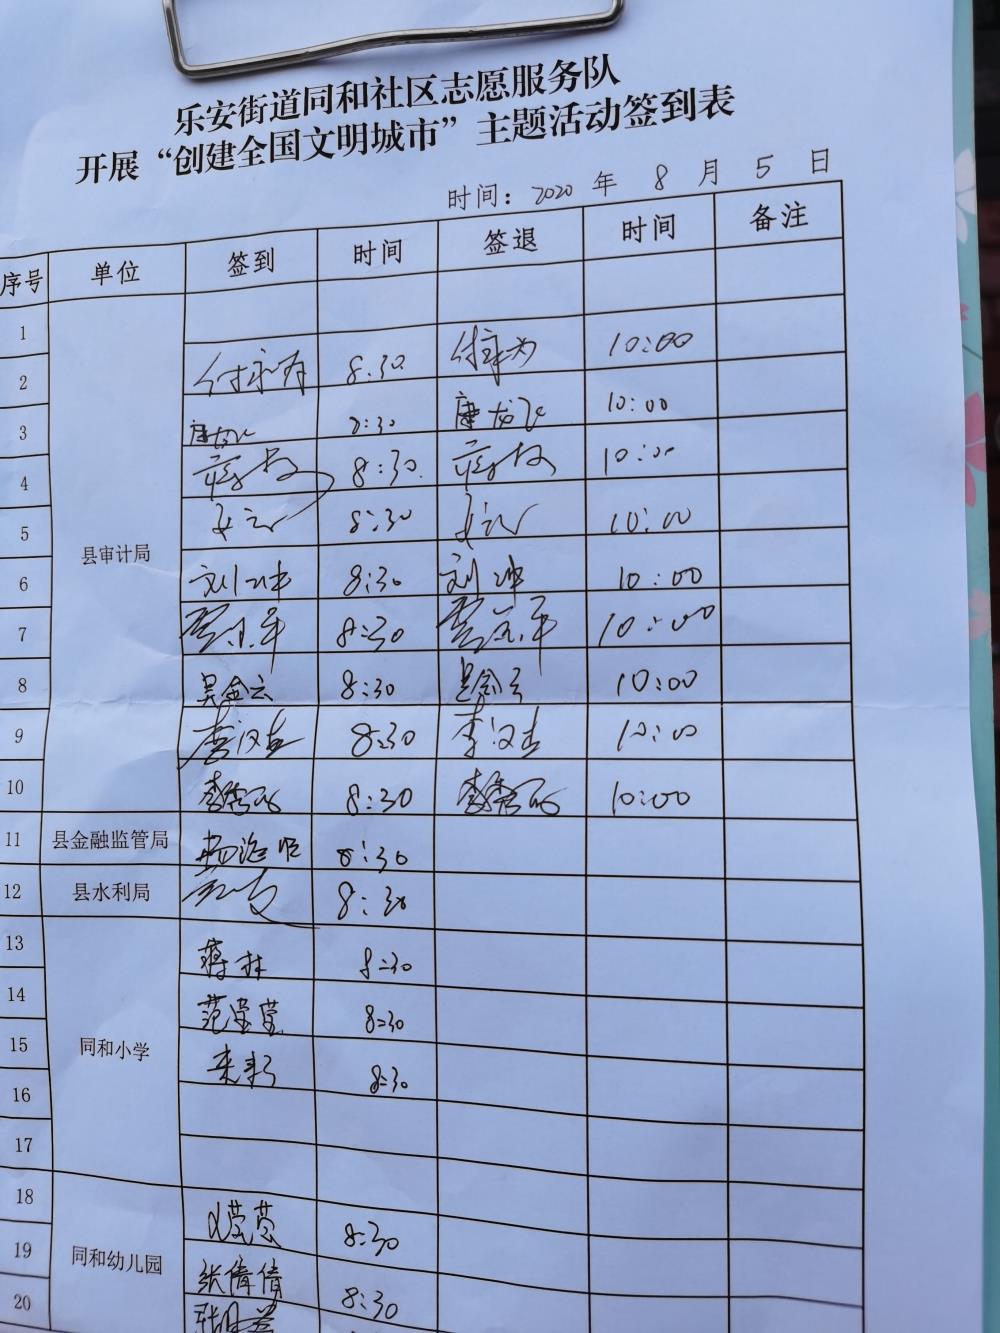 乐安街道同和社区志愿服务队
开展“创建全国文明城市”主题活动签到表
时间：2020 年 8 月 5 日
序号 单位 签到 时间 签退 时间 备注
1
2 8:30 10:00
3 唐龙飞 8:30 唐龙飞 10:00
4 8:30 10:00
5 8:30 10:00
县审计局
6 刘冲 8:30 刘冲 10:00
7 8:30 10:00
8 吴金云 8:30 吴金云 10:00
9 李汉杰 8:30 李汉杰 10:00
10 8:30 10:00
11 县金融监管局 8:30
12 县水利局 8:30
13 蒋林 8:30
14 范莹莹 8:30
15 同和小学 8:30
16
17
18 8:30
19 同和幼儿园 张倩倩 8:30
20